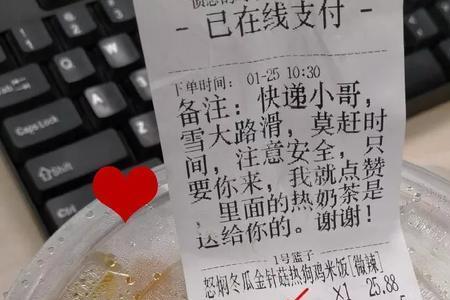 - 已在线支付 -
下单时间: 01-25 10:30
备注: 快递小哥,
雪大路滑, 莫赶时
间, 注意安全, 只
要你来, 我就点赞
, 里面的热奶茶是
送给你的。谢谢!
1号篮子
怒焖冬瓜金针菇热狗鸡米饭[微辣]
X1 25.88
Caps Lock
Shift